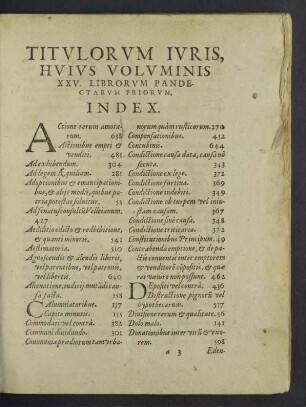 TITVLORVM IVRIS,
HVIVS VOLVMINIS
XXV. LIBRORVM PANDE-
CTARVM PRIORVM,
INDEX.
Actione rerum amota-
rum. 638
Actionibus empti &
venditi. 481
Ad exhibendum. 304
Ad legem Aquiliam. 281
Adoptionibus & emancipationi-
bus, & alijs modis, quibus pa-
tria potestas soluitur. 53
Ad senatusconsultū Velleianum.
427
Aedilitio edicto & redhibitione,
& quanti minoris. 541
Aestimatoria. 510
Agnoscendis & alendis liberis,
vel parentibus, vel patronis,
vel libertis. 640
Alienatione, iudicij mutādi cau-
sa facta. 158
Calumniatoribus. 137
Capite minutis. 155
Commodati vel contrà. 382
Communi diuidundo. 301
Communia prædiorum tam vrba-
norum quàm rusticorum. 270
Compensationibus. 432
Concubinis. 644
Condictione causa data, causa nō
secuta. 343
Condictione ex lege. 372
Condictione furtiua. 369
Condictione indebiti. 349
Condictione ob turpem vel iniu-
stam causam. 367
Condictione sine causa. 348
Condictione triticaria. 372
Constitutionibus Principum. 49
Contrahenda emptione, & de pa-
ctis conuentis inter emptorem
& venditorē cōpositis, & quæ
res venire non possunt. 462
Depositi vel contrà. 436
Distractione pignorū vel
hypothecarum. 517
Diuisione rerum & qualitate. 36
Dolo malo. 141
Donationibus inter virū & vxo-
rem. 598
a 3 Eden-